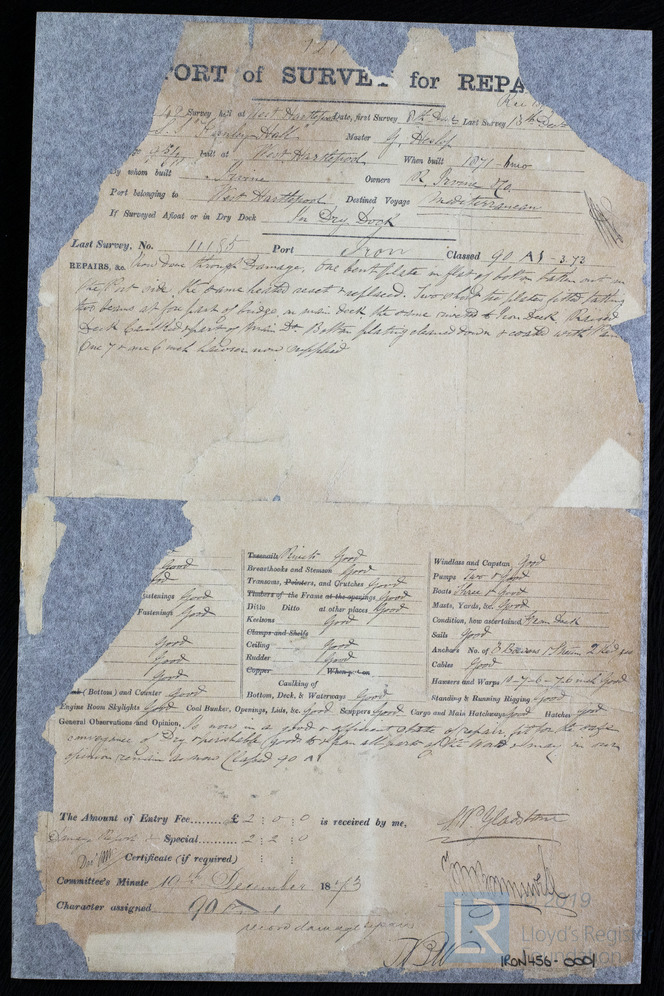 ORT of SURVEY for REPA
Survey held at West Hartlepool Date, first Survey 8th Dec Last Survey 18th Dec
Hall" Master G. Heslop
built at West Hartlepool When built 1871
By whom built Irvine Owners R Irvine & Co
Port belonging to West Hartlepool Destined Voyage Mediterranean
If Surveyed Afloat or in Dry Dock In Dry Dock
Last Survey, No. 11155 Port Iron Classed 90 A1 - 3.73
REPAIRS, &c. done through Damage. One bent plate in flat of bottom taken out on
the Port side the same heated reset & replaced. Two short tie plates fitted
two beams at fore part of bridge, on main deck the same riveted to Iron Deck Raised
Deck Caulked & part of Main Do Bottom plating cleaned down & coated with
One 7 & one 6 inch hawser now supplied
Good
astenings Good
Fastenings Good
Good
Good
Good
(Bottom) and Counter Good
Treenails Rivets Good
Breasthooks and Stemson Good
Transoms, Pointers, and Crutches Good
Timbers of the Frame at the openings Good
Ditto Ditto at other places Good
Keelsons Good
Clamps and Shelfs
Ceiling Good
Rudder Good
Copper When put on
Caulking of
Bottom, Deck, & Waterways Good
Windlass and Capstan Good
Pumps Two & Good
Boats Three & Good
Masts, Yards, &c. Good
Condition, how ascertained From Deck
Sails Good
Anchors No. of 3 Bowers 1 Stream 2 Kedges
Cables Good
Hawsers and Warps 10-7-6-7.6 inch Good
Standing & Running Rigging Good
Engine Room Skylights Good Coal Bunker, Openings, Lids, &c. Good Scuppers Good Cargo and Main Hatchways Good Hatches Good
General Observations and Opinion, Is now in a good & efficient state of repair, fit for the safe
conveyance of Dry & perishable Goods to & from all parts of the World & may in our
opinion remain as now Classed 90 A1
The Amount of Entry Fee......... £ 2 : 0 : 0 is received by me,
Damage Report Special ......... 2 : 2 : 0
Certificate (if required) : :
W Gladstone
Committee's Minute 19th December 1873
Character assigned 90 A 1
record damage repairs
© 2019
LR
Lloyd's Register
IRON456-0001